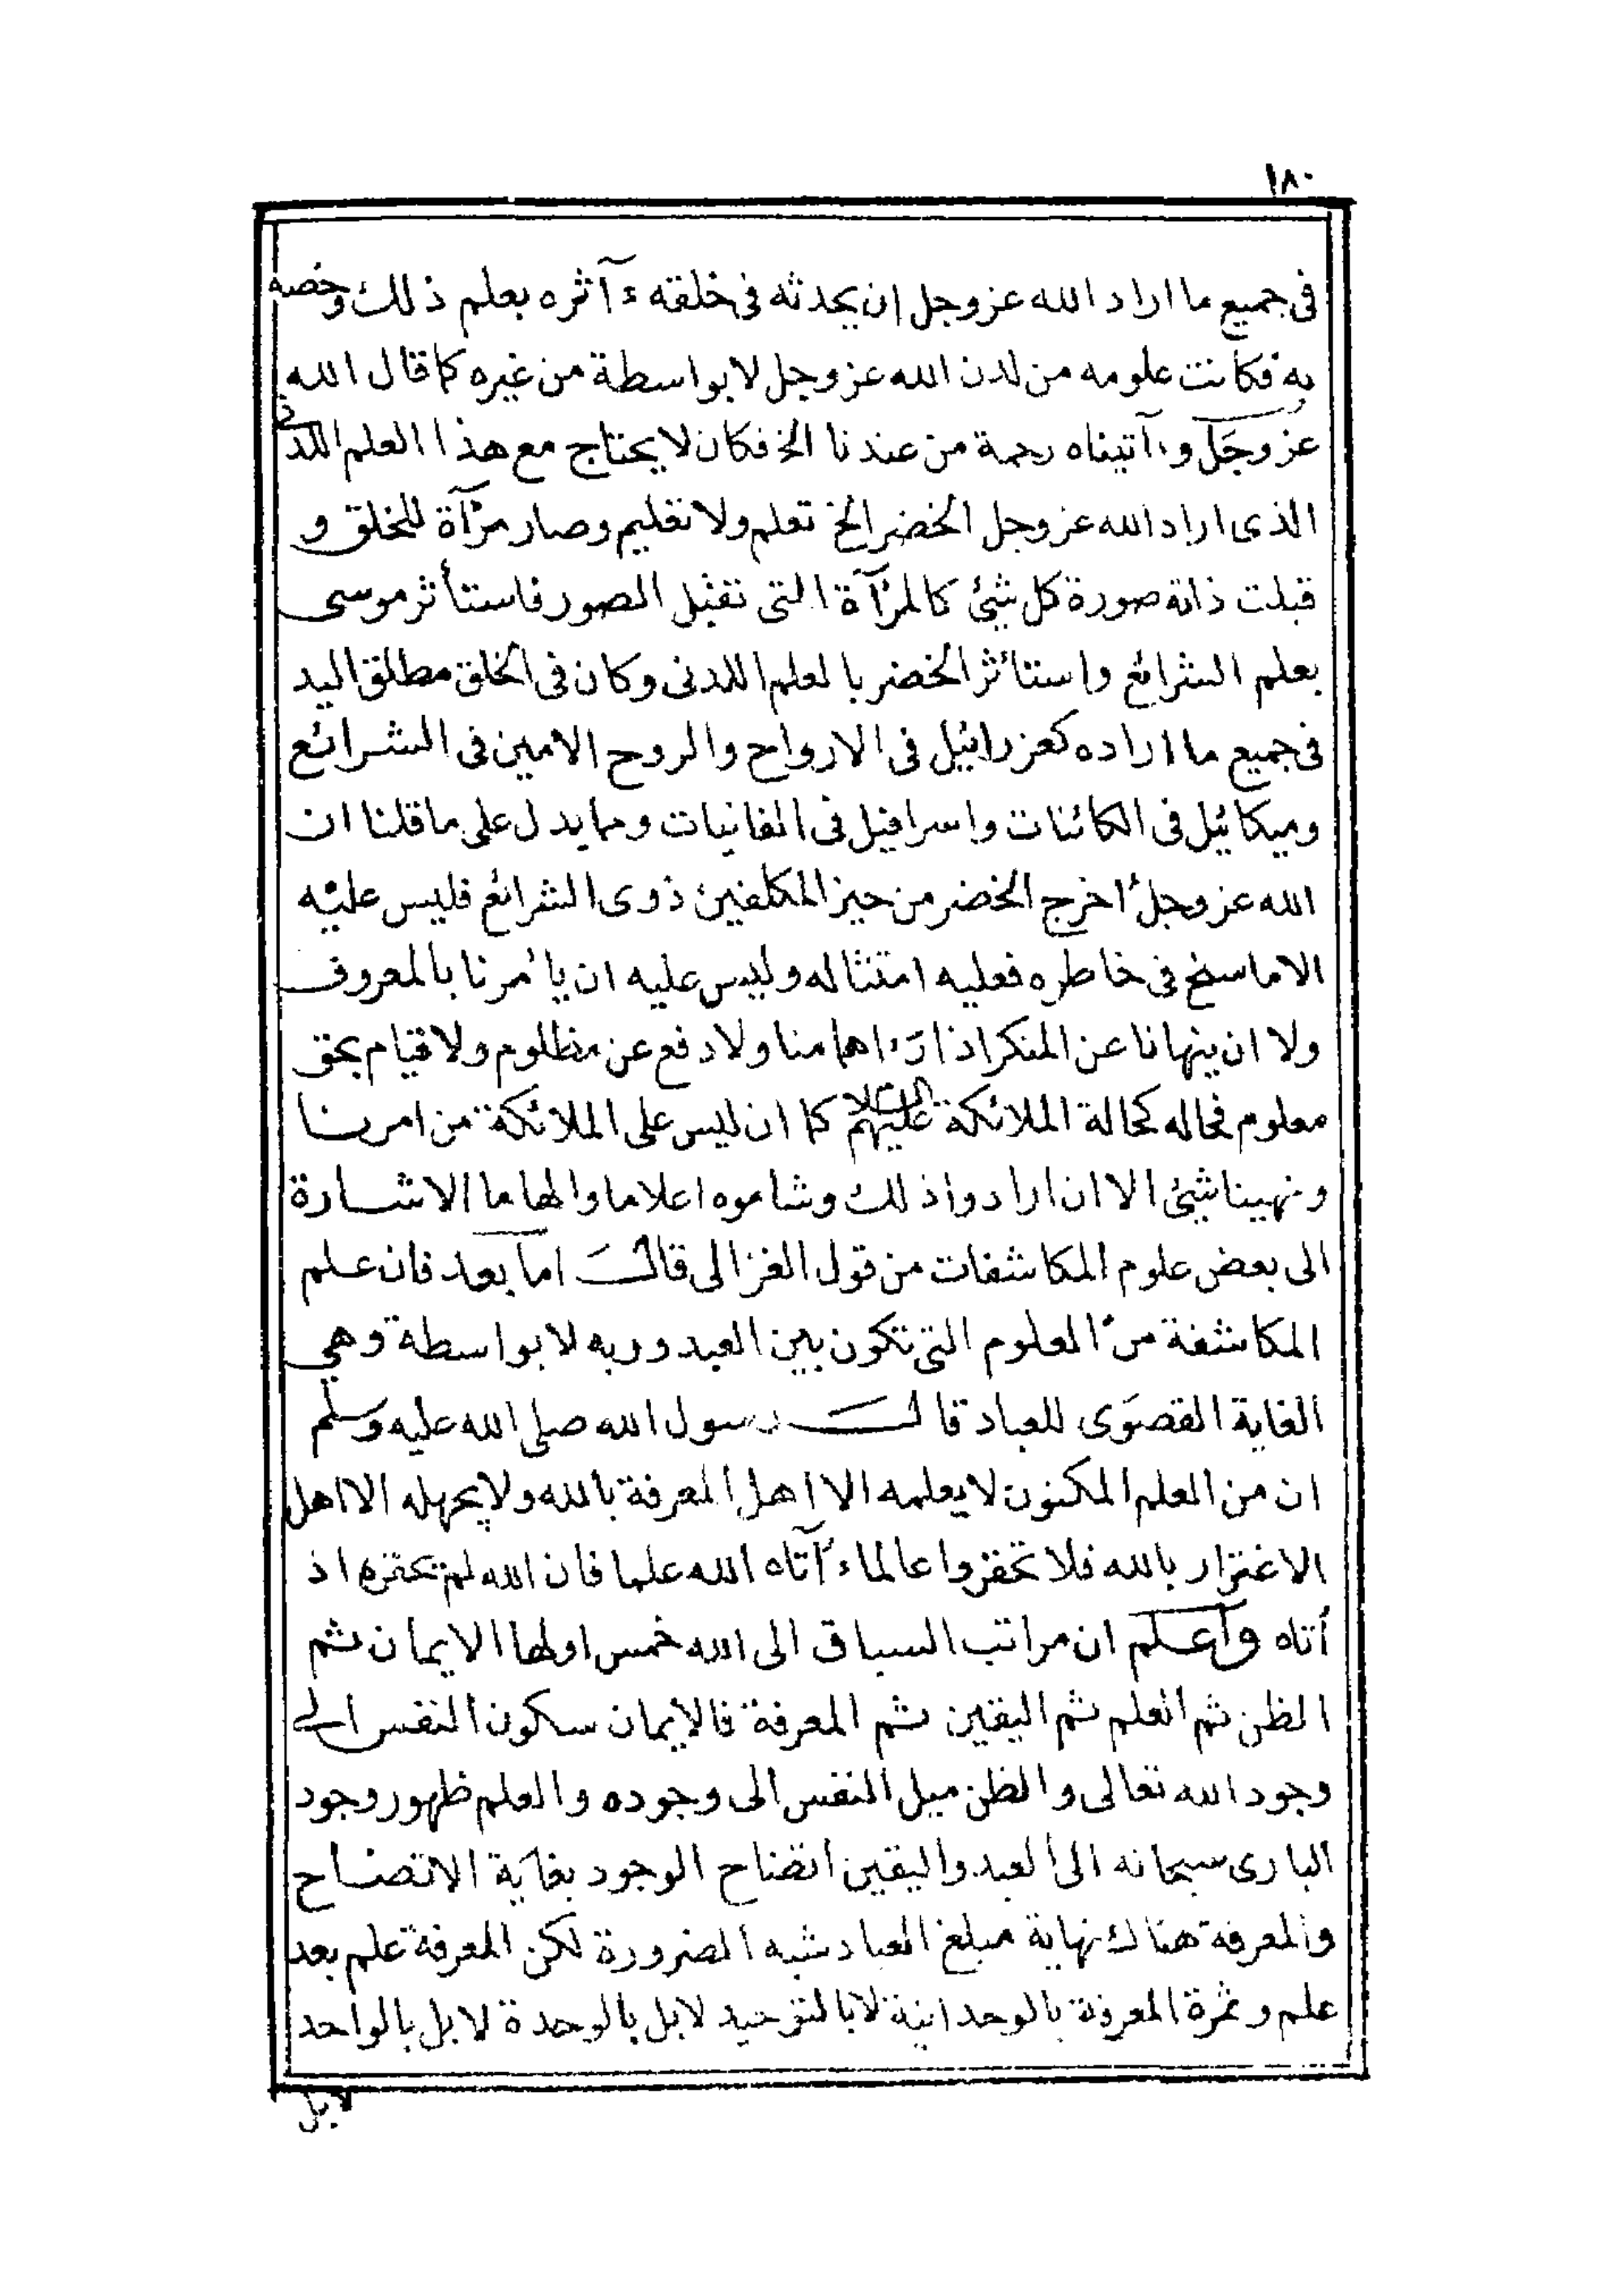 ١٨٠
فى جميع ما اراد الله عز وجل ان يحدثه فى خلقه ءآثره بعلم ذلك وخصه
به فكانت علومه من لدن الله عز وجل لا بواسطة من غيره كما قال الله
عز وجل وءاتيناه رحمة من عندنا الخ فكان لا يحتاج مع هذا العلم اللدنى
الذى اراد الله عز وجل الخضر الخ تعلم ولا تعليم وصار مرءآة للخلق و
قبلت ذاته صورة كل شىئ كالمرءآة التى تقبل الصور فاستأثر موسى
بعلم الشرائع واستائثر الخضر بالعلم اللدنى وكان فى الخلق مطلق اليد
فى جميع ما اراده كعزرائيل فى الارواح والروح الامين فى الشرائع
وميكائيل فى الكائنات واسرافيل فى الفانيات ومما يدل على ما قلنا ان
الله عز وجل اخرج الخضر من حيز المكلفين ذوى الشرائع فليس عليه
الا ما سنح فى خاطره فعليه امتثاله وليس عليه ان يأمرنا بالمعروف
ولا ان ينهانا عن المنكر اذا رءاهما منا ولا دفع عن مظلوم ولا قيام بحق
معلوم فحاله كحالة الملائكة عليهم السلام كما ان ليس على الملائكة من امرنا
ونهينا شىئ الا ان ارادوا ذلك وشاموه اعلاما والهاما الاشارة
الى بعض علوم المكاشفات من قول الغزالى قال اما بعد فان علم
المكاشفة من العلوم التى تكون بين العبد وربه لا بواسطة وهى
الغاية القصوى للعباد قال رسول الله صلى الله عليه وسلم
ان من العلم المكنون لا يعلمه الا اهل المعرفة بالله ولا يجهله الا اهل
الاغترار بالله فلا تحقروا عالما ءآتاه الله علما فان الله لم يحقره اذ
أتاه واعلم ان مراتب السباق الى الله خمس اولها الايمان ثم
الظن ثم العلم ثم اليقين ثم المعرفة فالايمان سكون النفس الى
وجود الله تعالى والظن ميل النفس الى وجوده والعلم ظهور وجود
البارى سبحانه الى العبد واليقين اتضاح الوجود بغاية الاتضاح
والمعرفة هناك نهاية مبلغ العباد شبه الضرورة لكن المعرفة علم بعد
علم وثمرة المعرفة بالوحدانية لا بالتوحيد لا بل بالوحدة لا بل بالواحد
لا بل